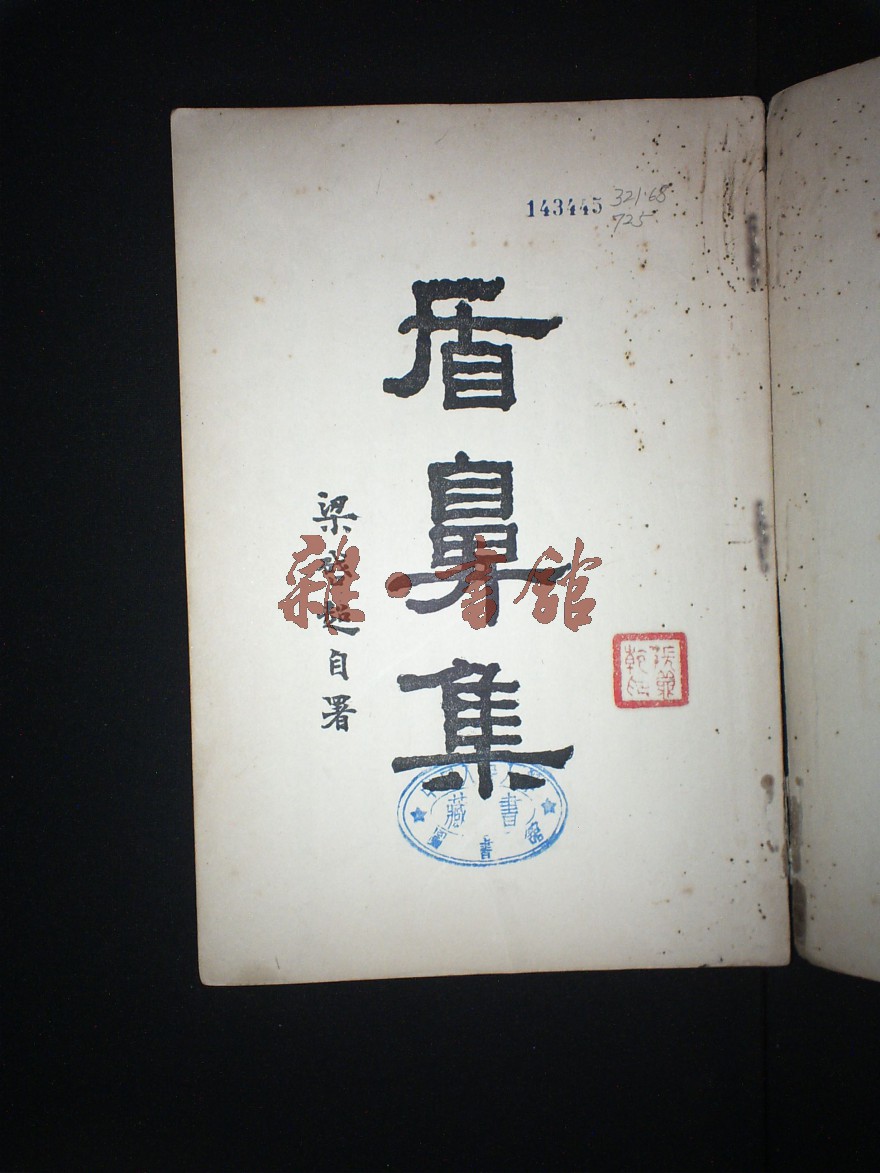 143445
321·68
725
盾鼻集
梁啓超自署
雜·書館
藏書